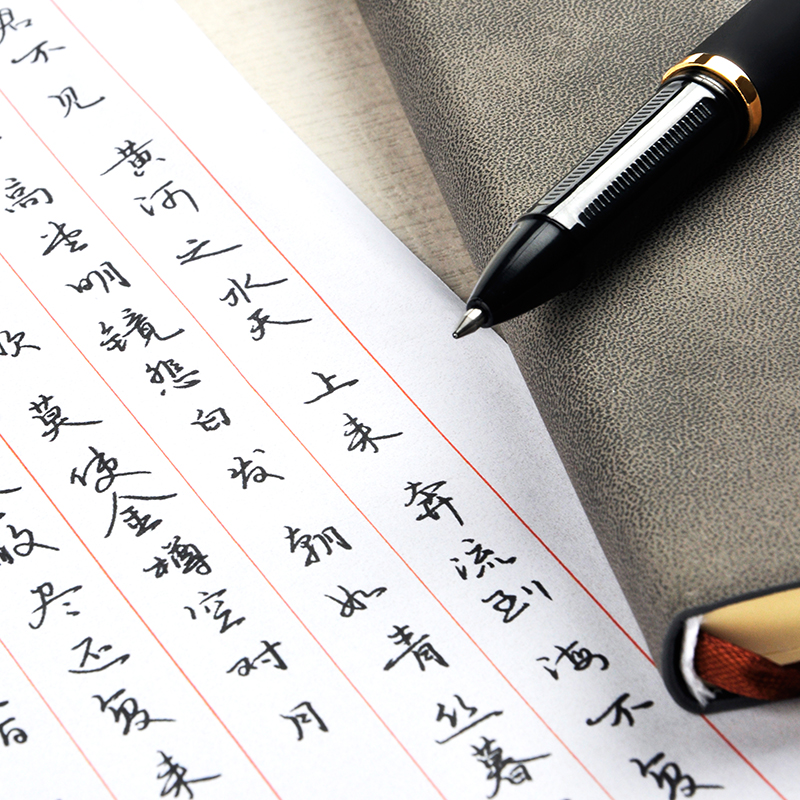 君不见黄河之水天上来奔流到海不复
高堂明镜悲白发朝如青丝暮
欢莫使金樽空对月
散尽还复来